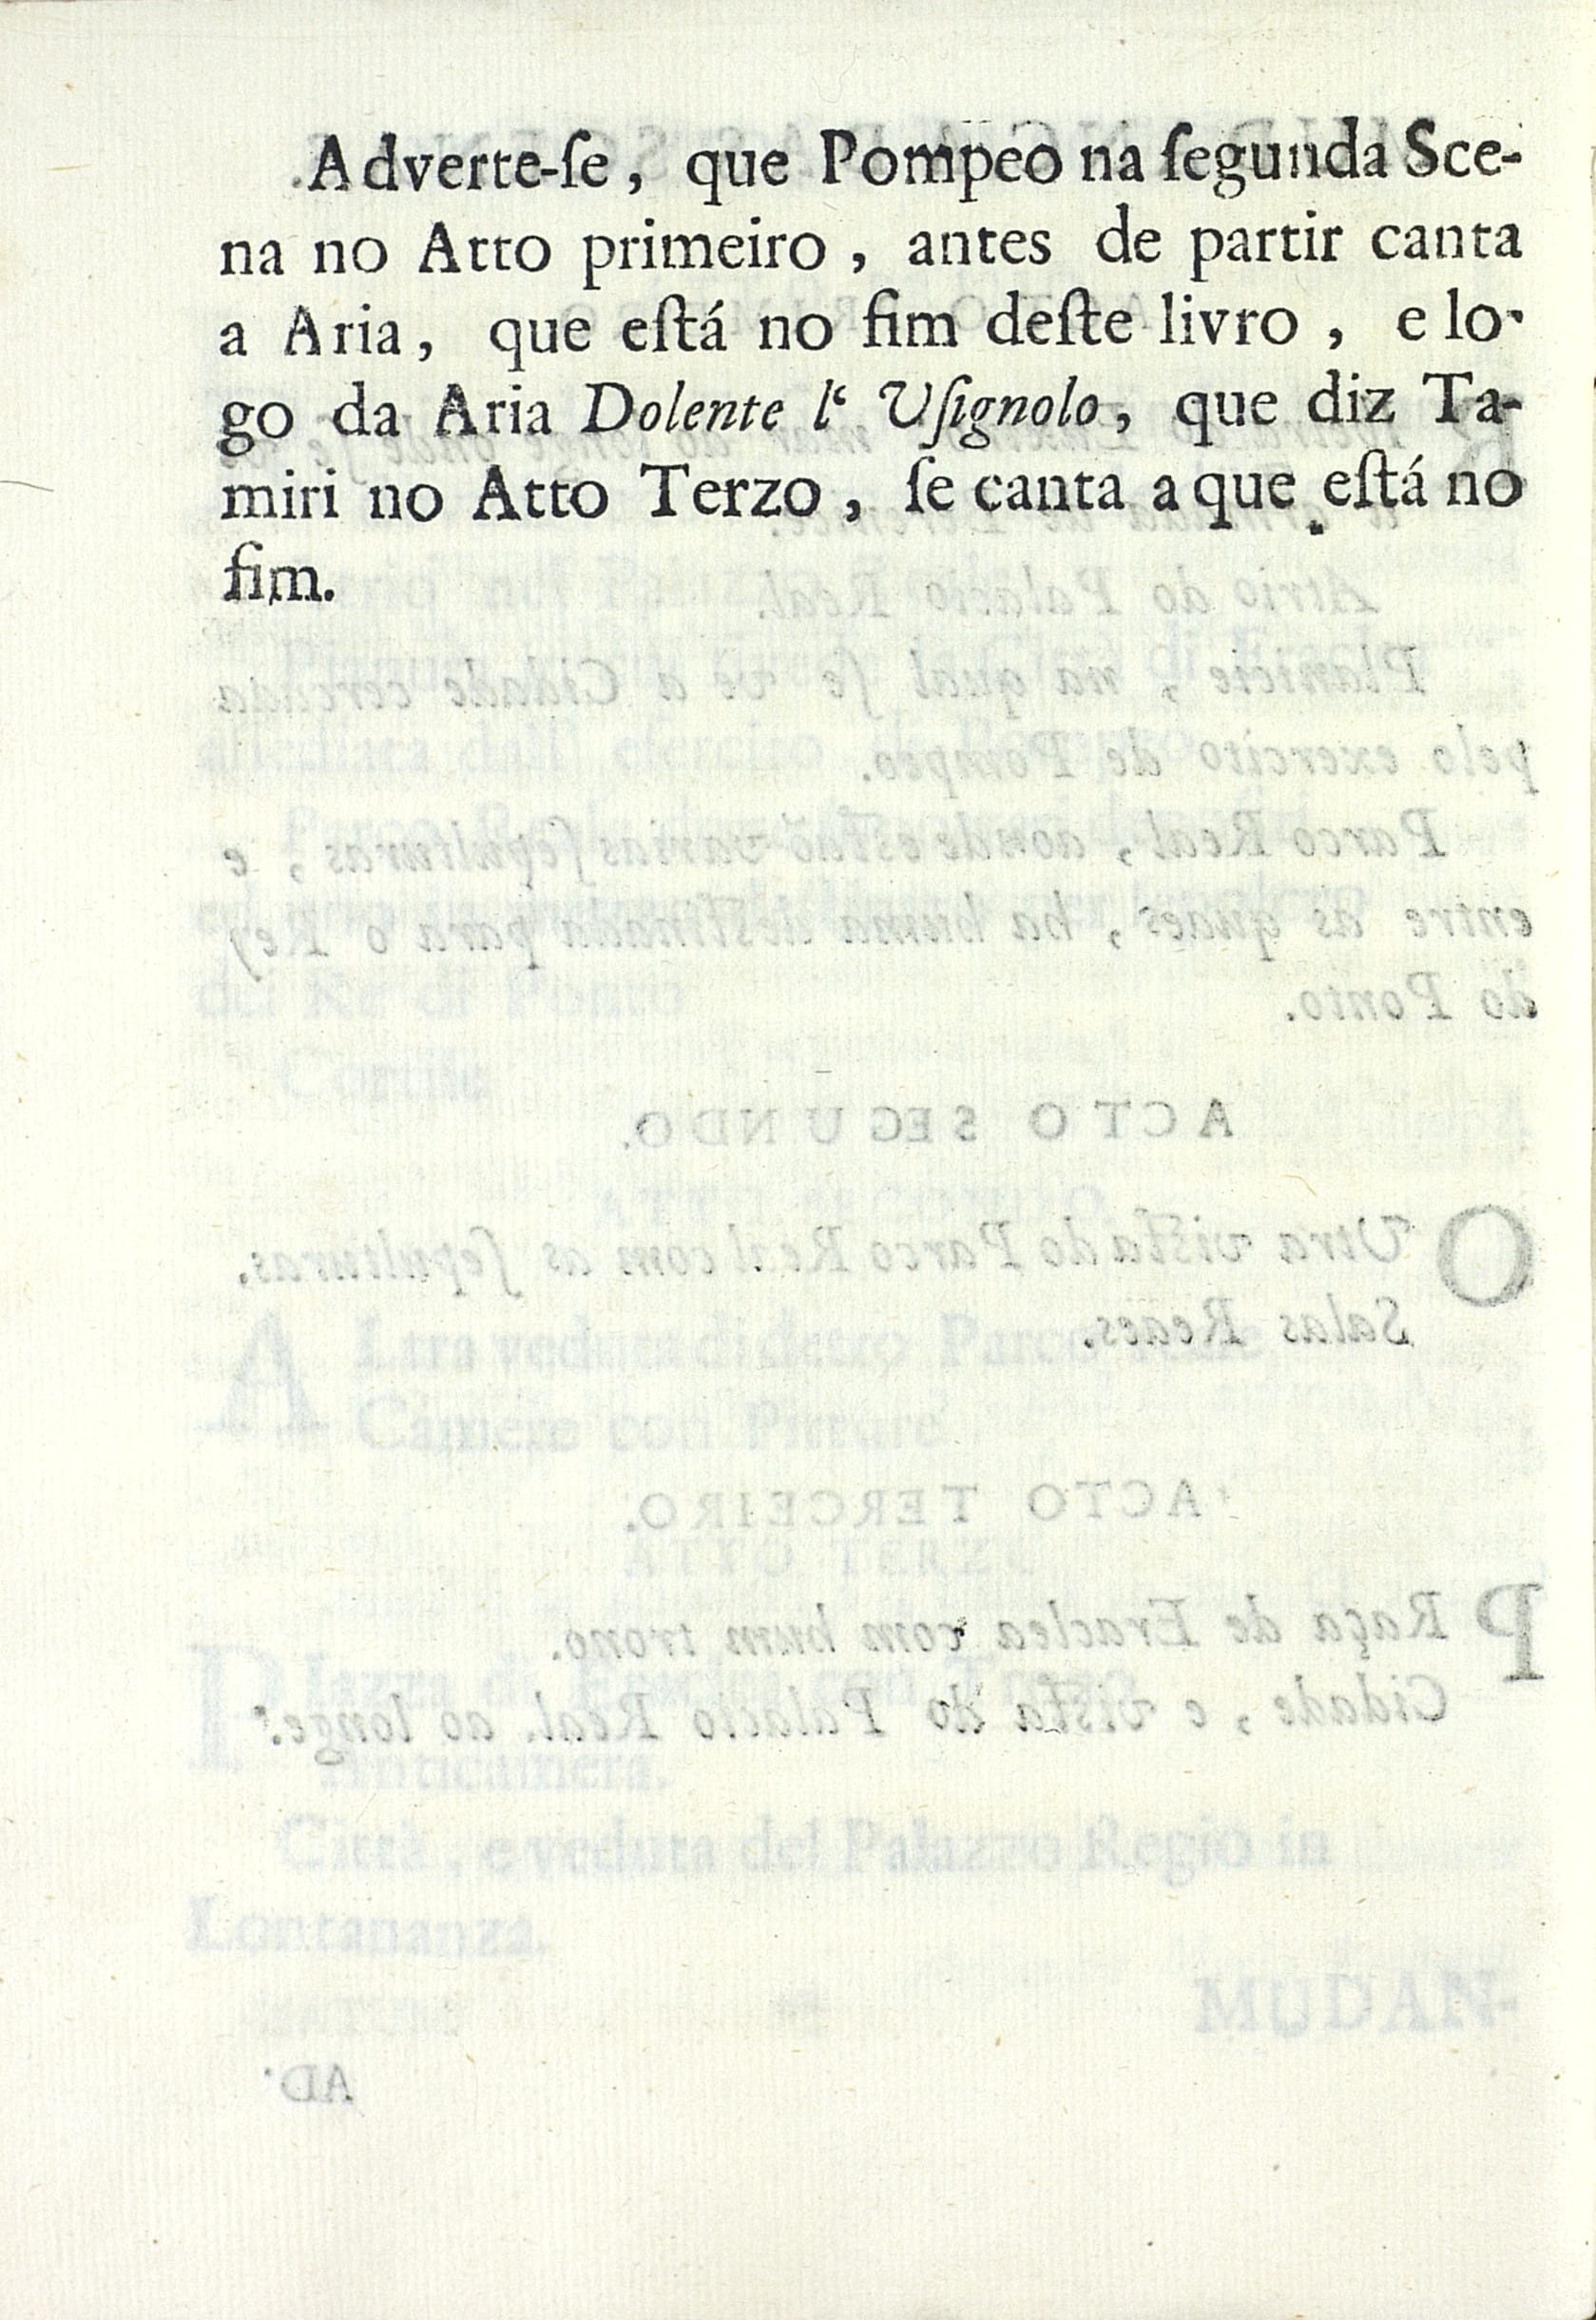 Adverte-ſe, que Pompeo na ſegunda Sce-
na no Atto primeiro, antes de partir canta
a Aria, que eſtá no fim deſte livro, e lo-
go da Aria Dolente l‘ Uſignolo, que diz Ta-
miri no Atto Terzo, ſe canta a que eſtá no
fim.